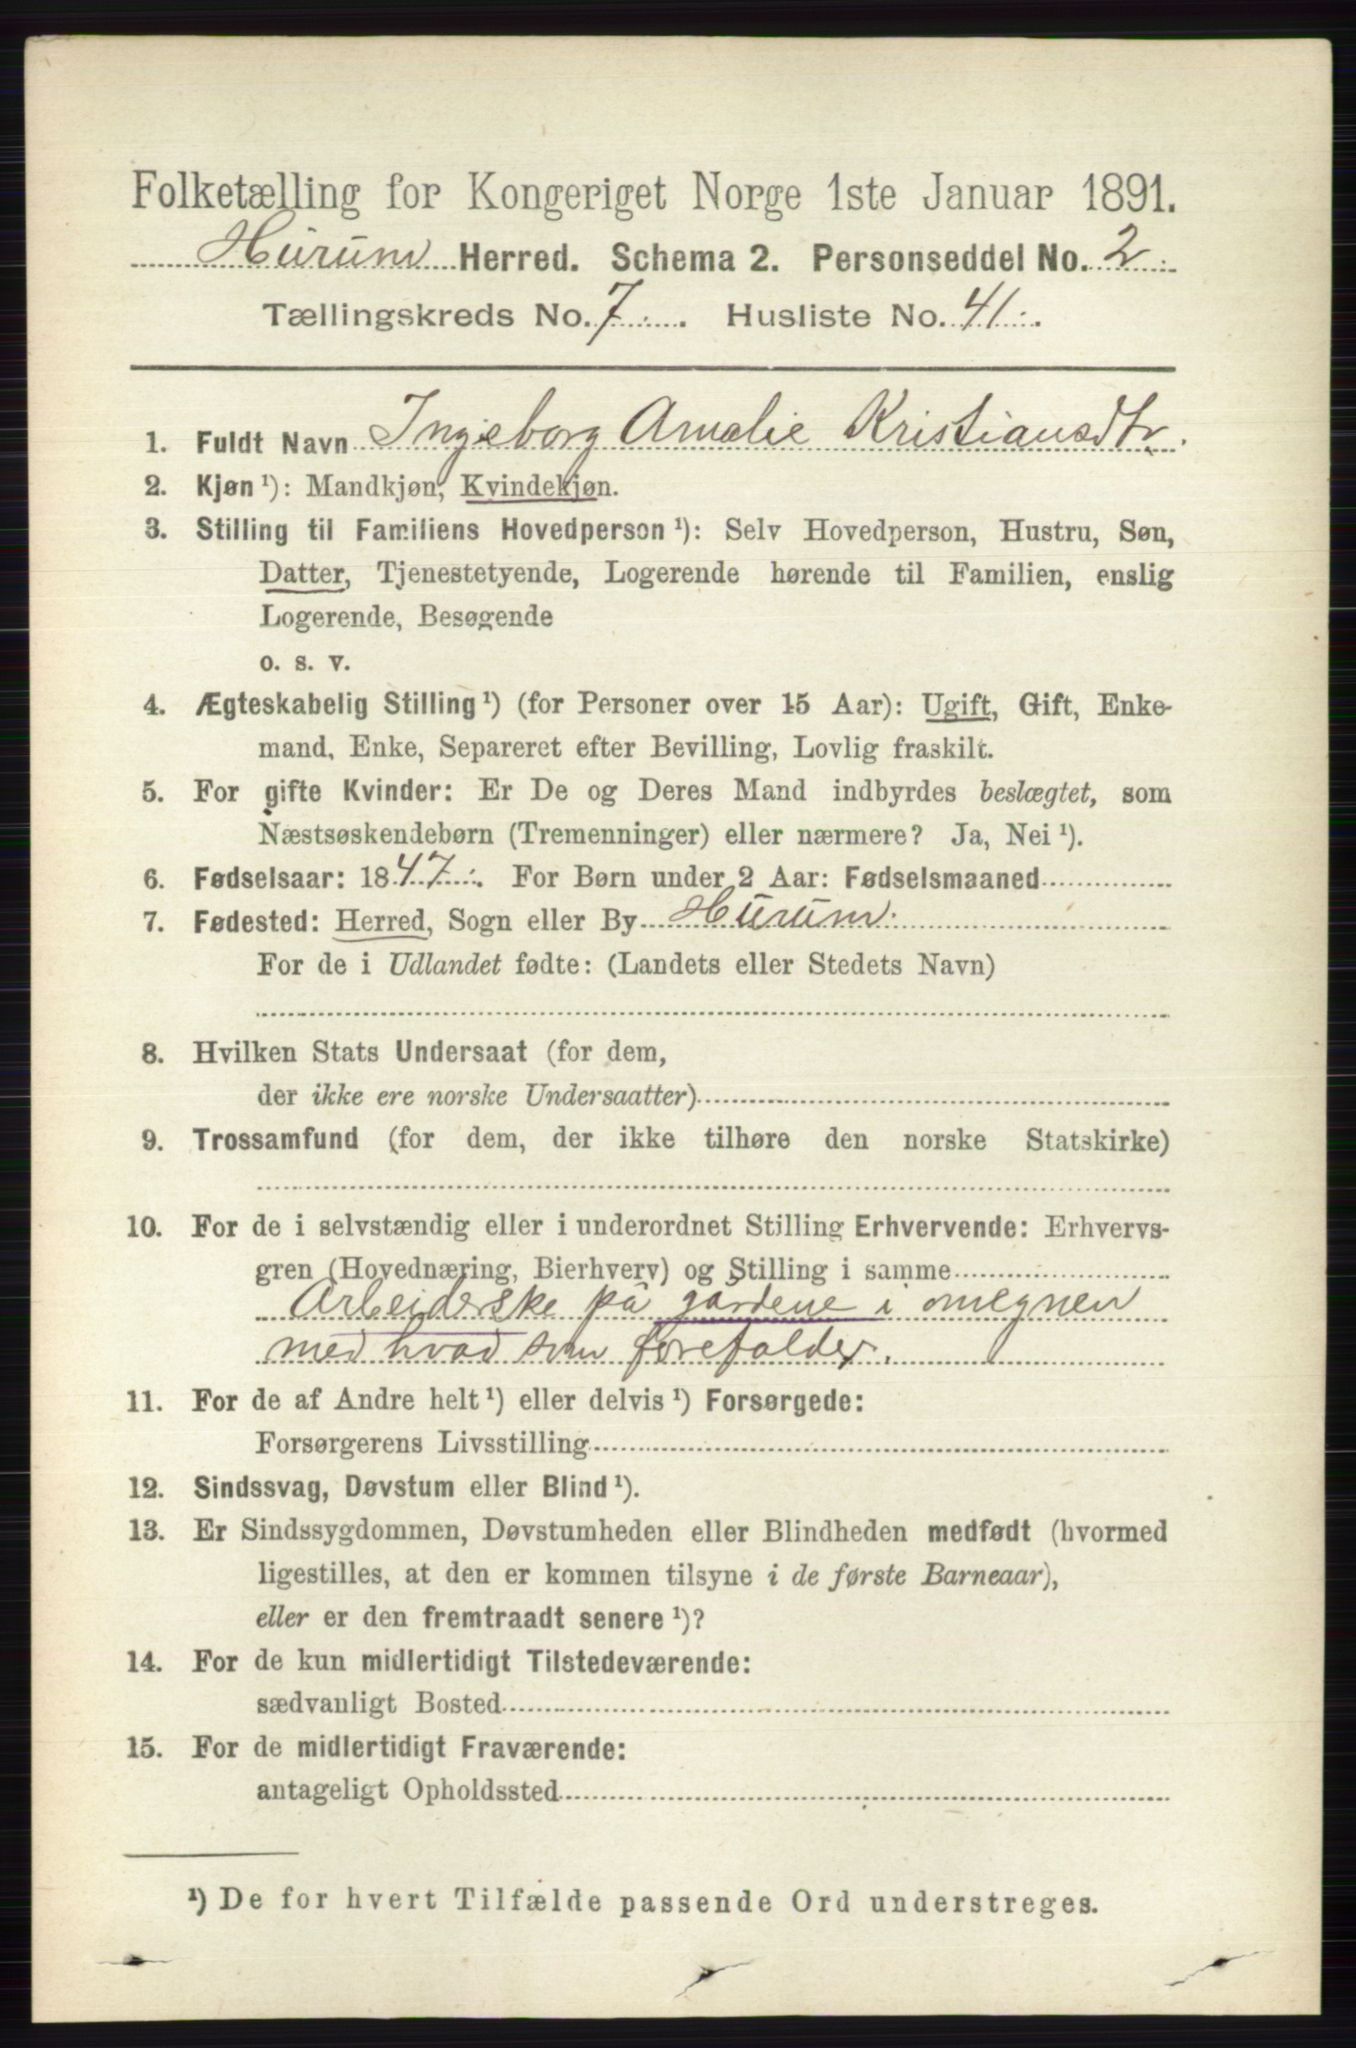 Folketælling for Kongeriget Norge 1ste Januar 1891.
Hurum Herred. Schema 2. Personseddel No. 2
Tællingskreds No. 7. Husliste No. 41.
1. Fuldt Navn Ingeborg Amalie Kristiansdtr.
2. Kjøn ¹): Mandkjøn, Kvindekjøn.
3. Stilling til Familiens Hovedperson ¹): Selv Hovedperson, Hustru, Søn,
Datter, Tjenestetyende, Logerende hørende til Familien, enslig
Logerende, Besøgende
o. s. v.
4. Ægteskabelig Stilling ¹) (for Personer over 15 Aar): Ugift, Gift, Enke-
mand, Enke, Separeret efter Bevilling, Lovlig fraskilt.
5. For gifte Kvinder: Er De og Deres Mand indbyrdes beslægtet, som
Næstsøskendebørn (Tremenninger) eller nærmere? Ja, Nei ¹).
6. Fødselsaar: 1847. For Børn under 2 Aar: Fødselsmaaned
7. Fødested: Herred, Sogn eller By Hurum
For de i Udlandet fødte: (Landets eller Stedets Navn)
8. Hvilken Stats Undersaat (for dem,
der ikke ere norske Undersaatter)
9. Trossamfund (for dem, der ikke tilhøre den norske Statskirke)
10. For de i selvstændig eller i underordnet Stilling Erhvervende: Erhvervs-
gren (Hovednæring, Bierhverv) og Stilling i samme
Arbeiderske på gårdene i omegnen
med hvad som forefalder.
11. For de af Andre helt ¹) eller delvis ¹) Forsørgede:
Forsørgerens Livsstilling
12. Sindssvag, Døvstum eller Blind ¹).
13. Er Sindssygdommen, Døvstumheden eller Blindheden medfødt (hvormed
ligestilles, at den er kommen tilsyne i de første Barneaar),
eller er den fremtraadt senere ¹)?
14. For de kun midlertidigt Tilstedeværende:
sædvanligt Bosted
15. For de midlertidigt Fraværende:
antageligt Opholdssted
¹) De for hvert Tilfælde passende Ord understreges.